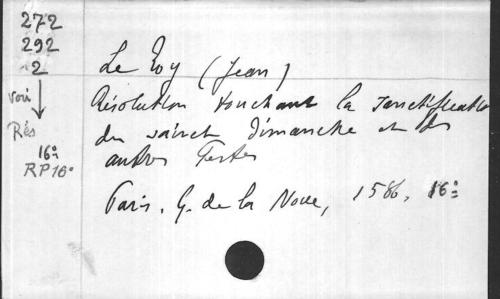 272
292
2
voir
Rés
16°
RP16°
Le Roy (Jean)
Résolution touchant la sanctification
du sainct Dimanche et des
autres Festes
Paris. G. de la Noue, 1586, 16°